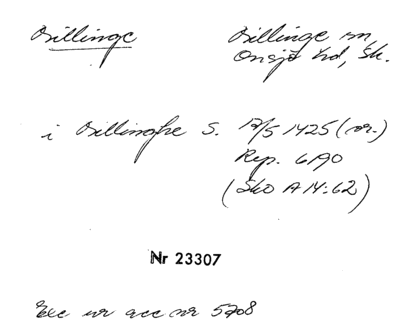 Billinge
Billinge sn,
Onsjö hd, Sk.
i Billinghe S. 12/5 1425 (or.)
Rep. 6190
(Sko A 14:62)
Nr 23307
Exc ur acc nr 5208